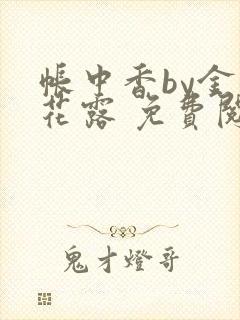 帳中香by金
花露 免費閱
鬼才燈哥